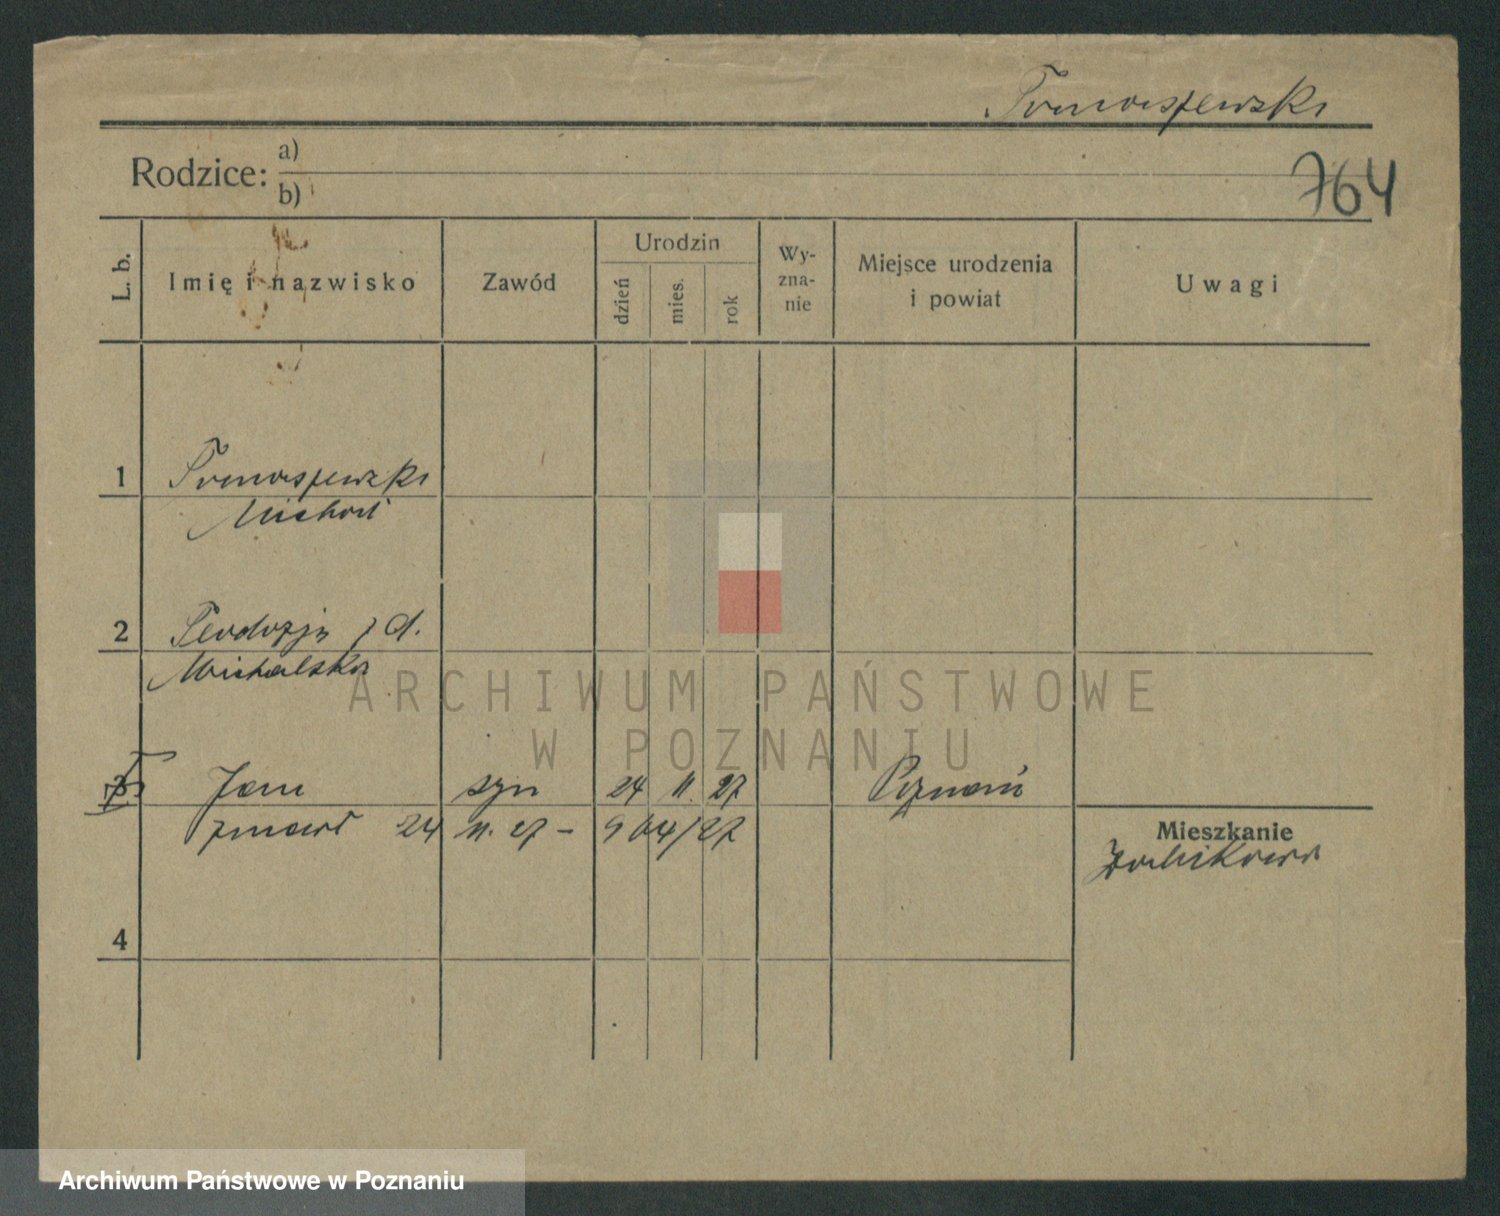 Tomaszewski
Rodzice: a)
b)
764
L. b.
Imię i nazwisko
Zawód
Urodzin
dzień
mies.
rok
Wy-
zna-
nie
Miejsce urodzenia
i powiat
Uwagi
1 Tomaszewski
Michał
2 Teodozja z d.
Michalska
3 Jan syn 24 11. 27 Poznań
zmarł 24 11. 27 –
4
Mieszkanie
ARCHIWUM PAŃSTWOWE
W POZNANIU
Archiwum Państwowe w Poznaniu